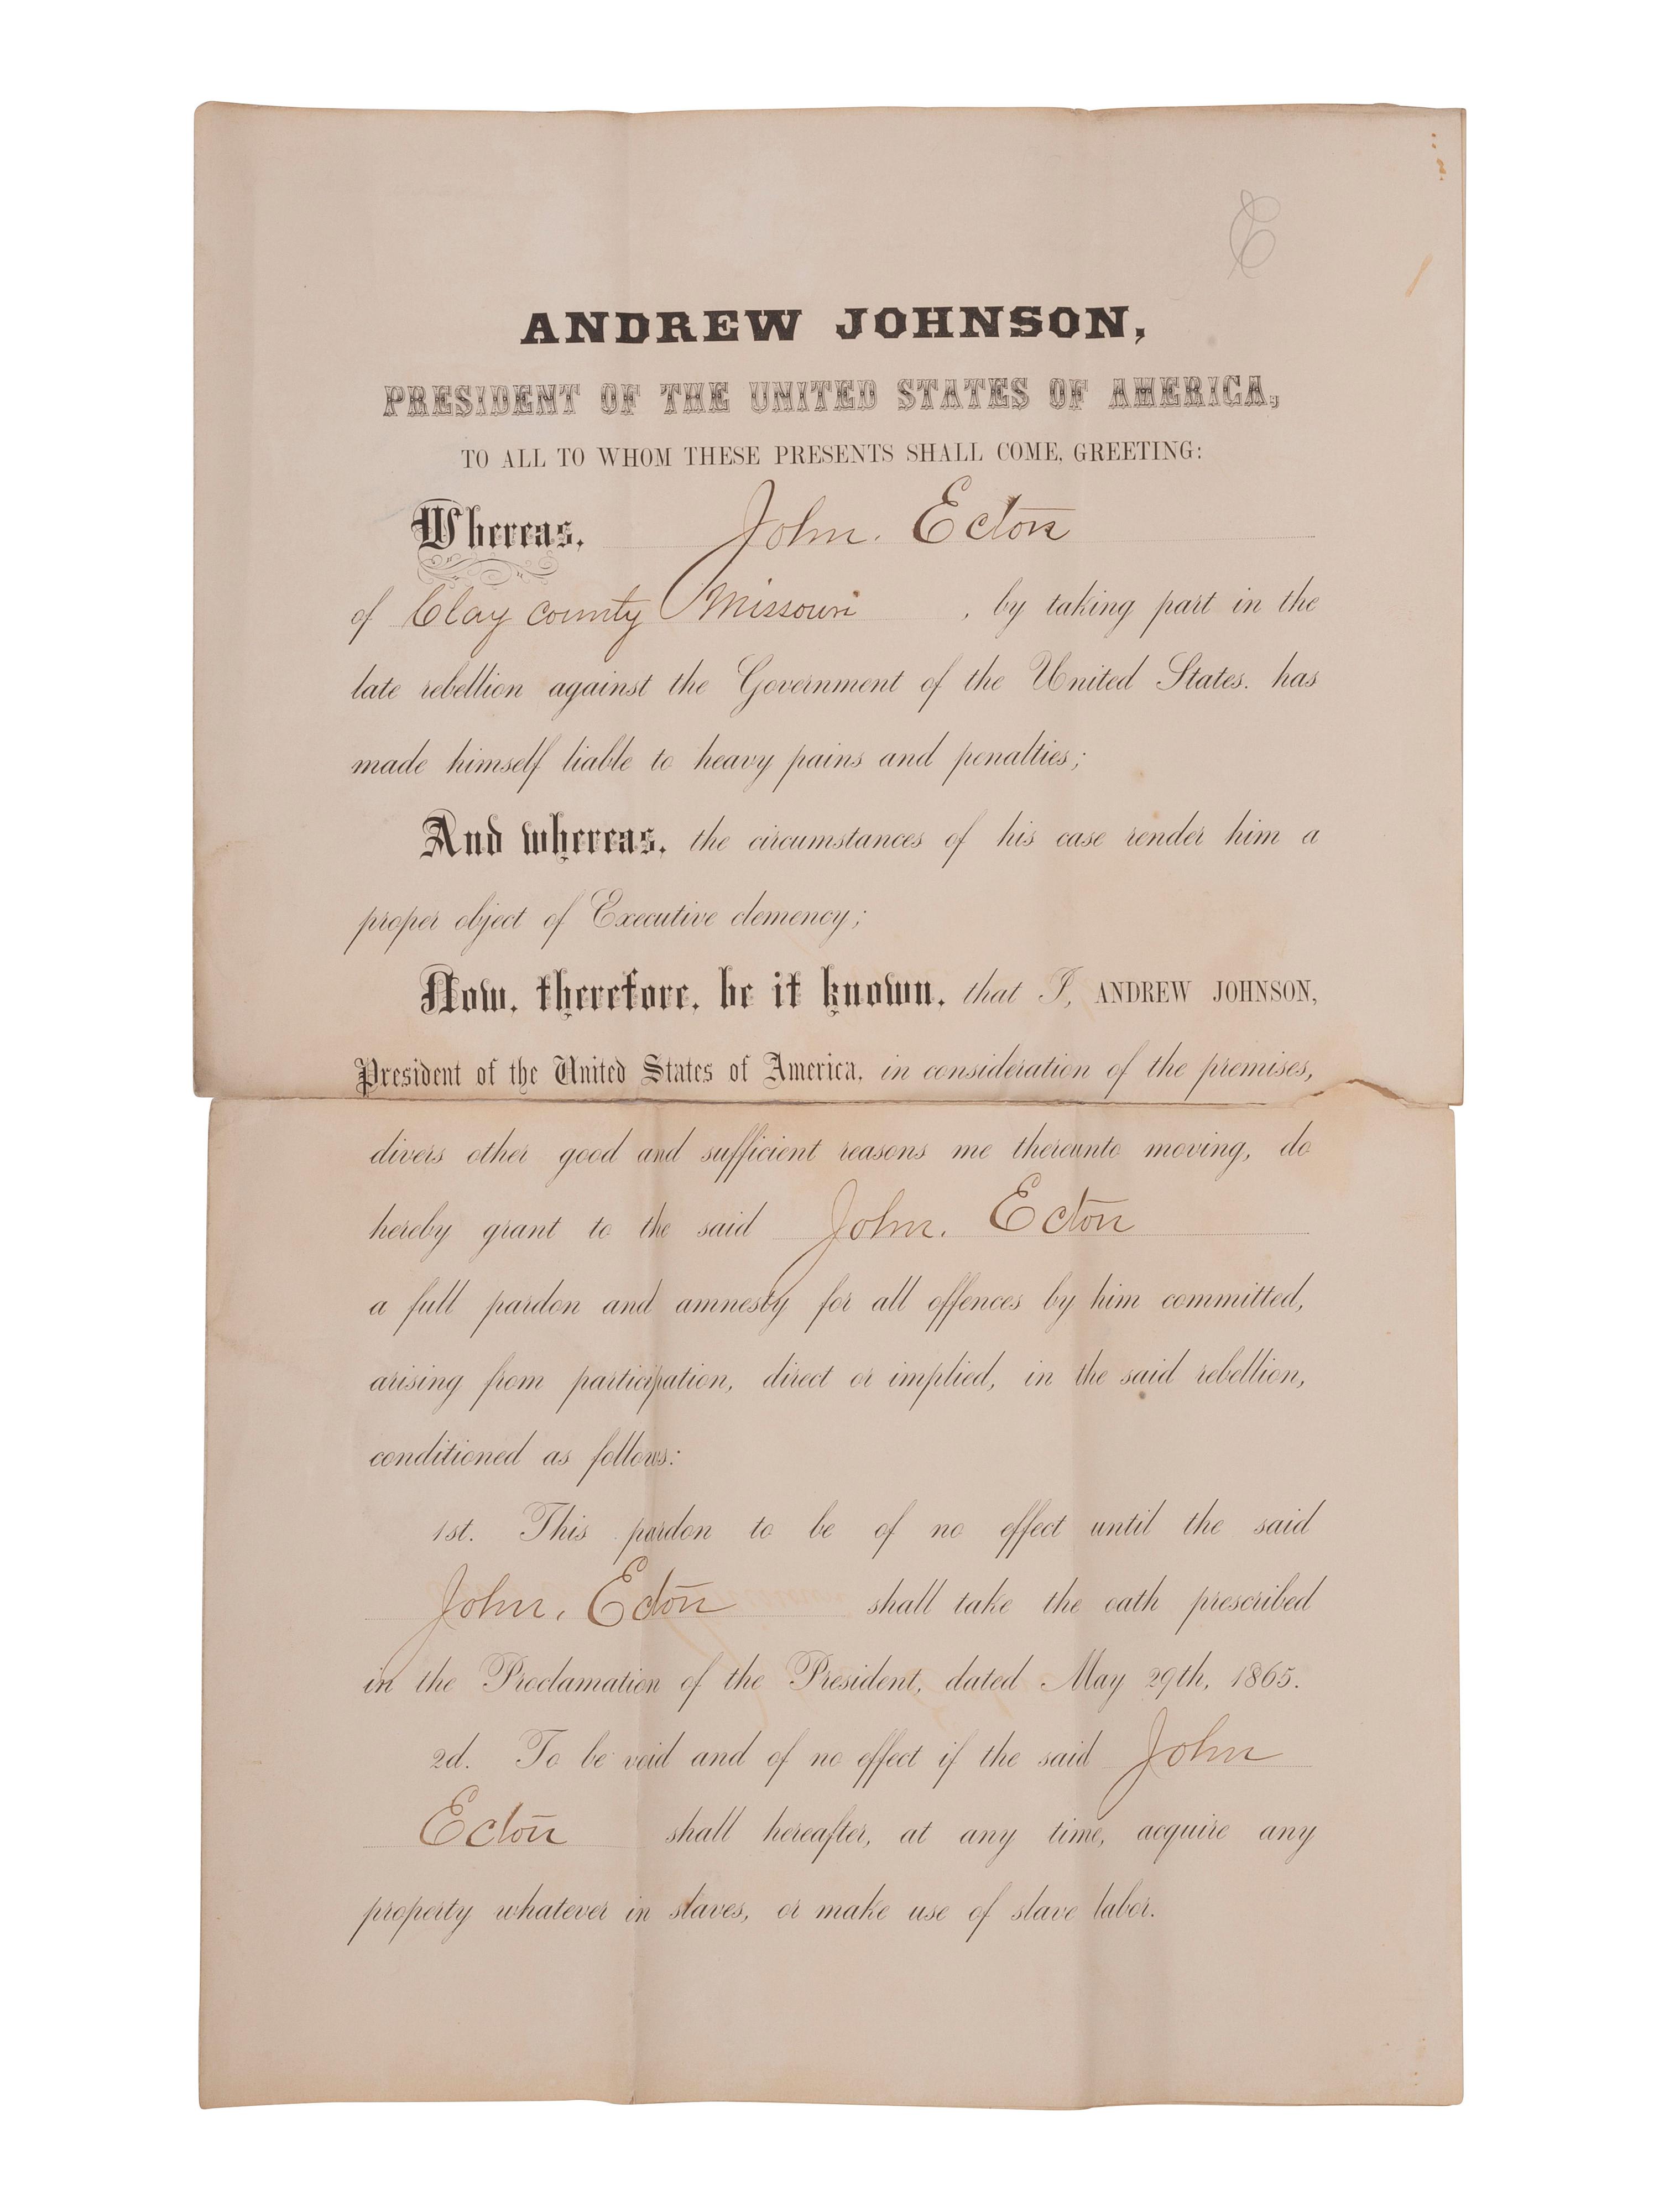 E
ANDREW JOHNSON,
PRESIDENT OF THE UNITED STATES OF AMERICA,
TO ALL TO WHOM THESE PRESENTS SHALL COME, GREETING:
Whereas, John. Ecton
of Clay county Missouri , by taking part in the
late rebellion against the Government of the United States. has
made himself liable to heavy pains and penalties;
And whereas, the circumstances of his case render him a
proper object of Executive clemency;
Now, therefore, be it known, that I, ANDREW JOHNSON,
President of the United States of America, in consideration of the premises,
divers other good and sufficient reasons me thereunto moving, do
hereby grant to the said John. Ecton
a full pardon and amnesty for all offences by him committed,
arising from participation, direct or implied, in the said rebellion,
conditioned as follows:
1st. This pardon to be of no effect until the said
John. Ecton shall take the oath prescribed
in the Proclamation of the President, dated May 29th, 1865.
2d. To be void and of no effect if the said John
Ecton shall hereafter, at any time, acquire any
property whatever in slaves, or make use of slave labor.